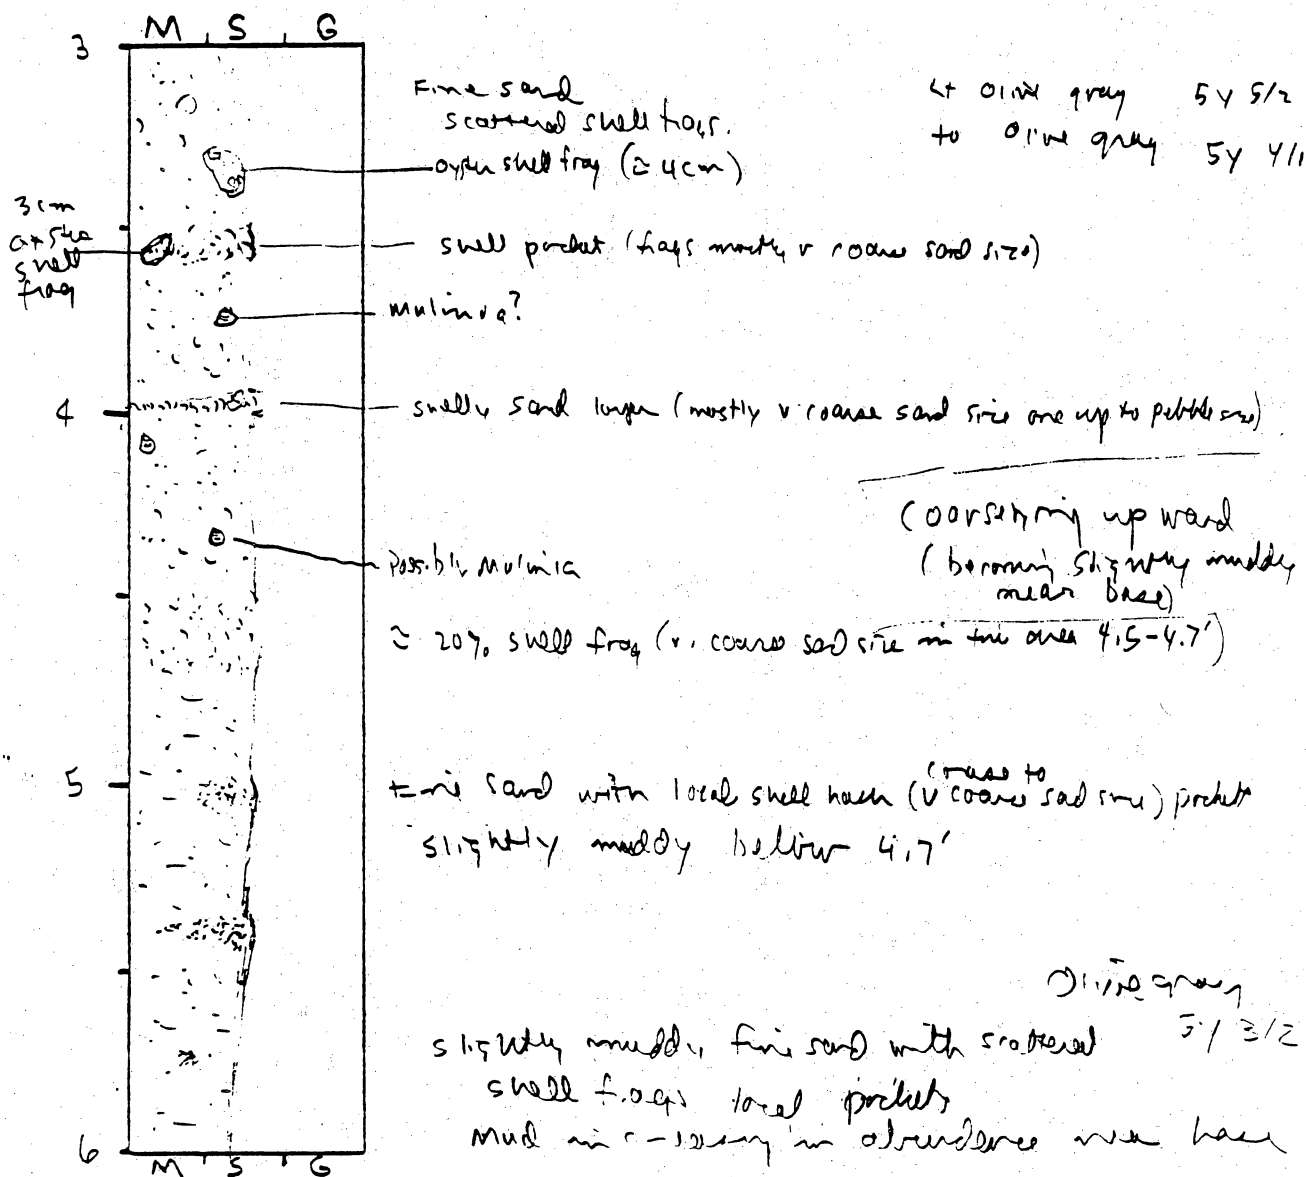 M S G
3
Fine sand
scattered shell frags.
oyster shell frag (≈ 4cm)
Lt Olive gray 5Y 5/2
to Olive gray 5Y 4/1
3cm
oyster
shell
frag
shell pocket (frags mostly v coarse sand size)
Mulinia?
4
shelly sand layer (mostly v coarse sand size one up to pebble size)
Coarsening upward
(becoming slightly muddy
near base)
Possibly Mulinia
≈ 20% shell frag (v. coarse sad size in the area 4.5-4.7')
5
coarse to
Fine sand with local shell hash (v coarse sad size) pockets
slightly muddy below 4.7'
Olive gray
5Y 3/2
slightly muddy fine sand with scattered
shell frags local pockets
Mud increasing in abundance near base
6
M S G